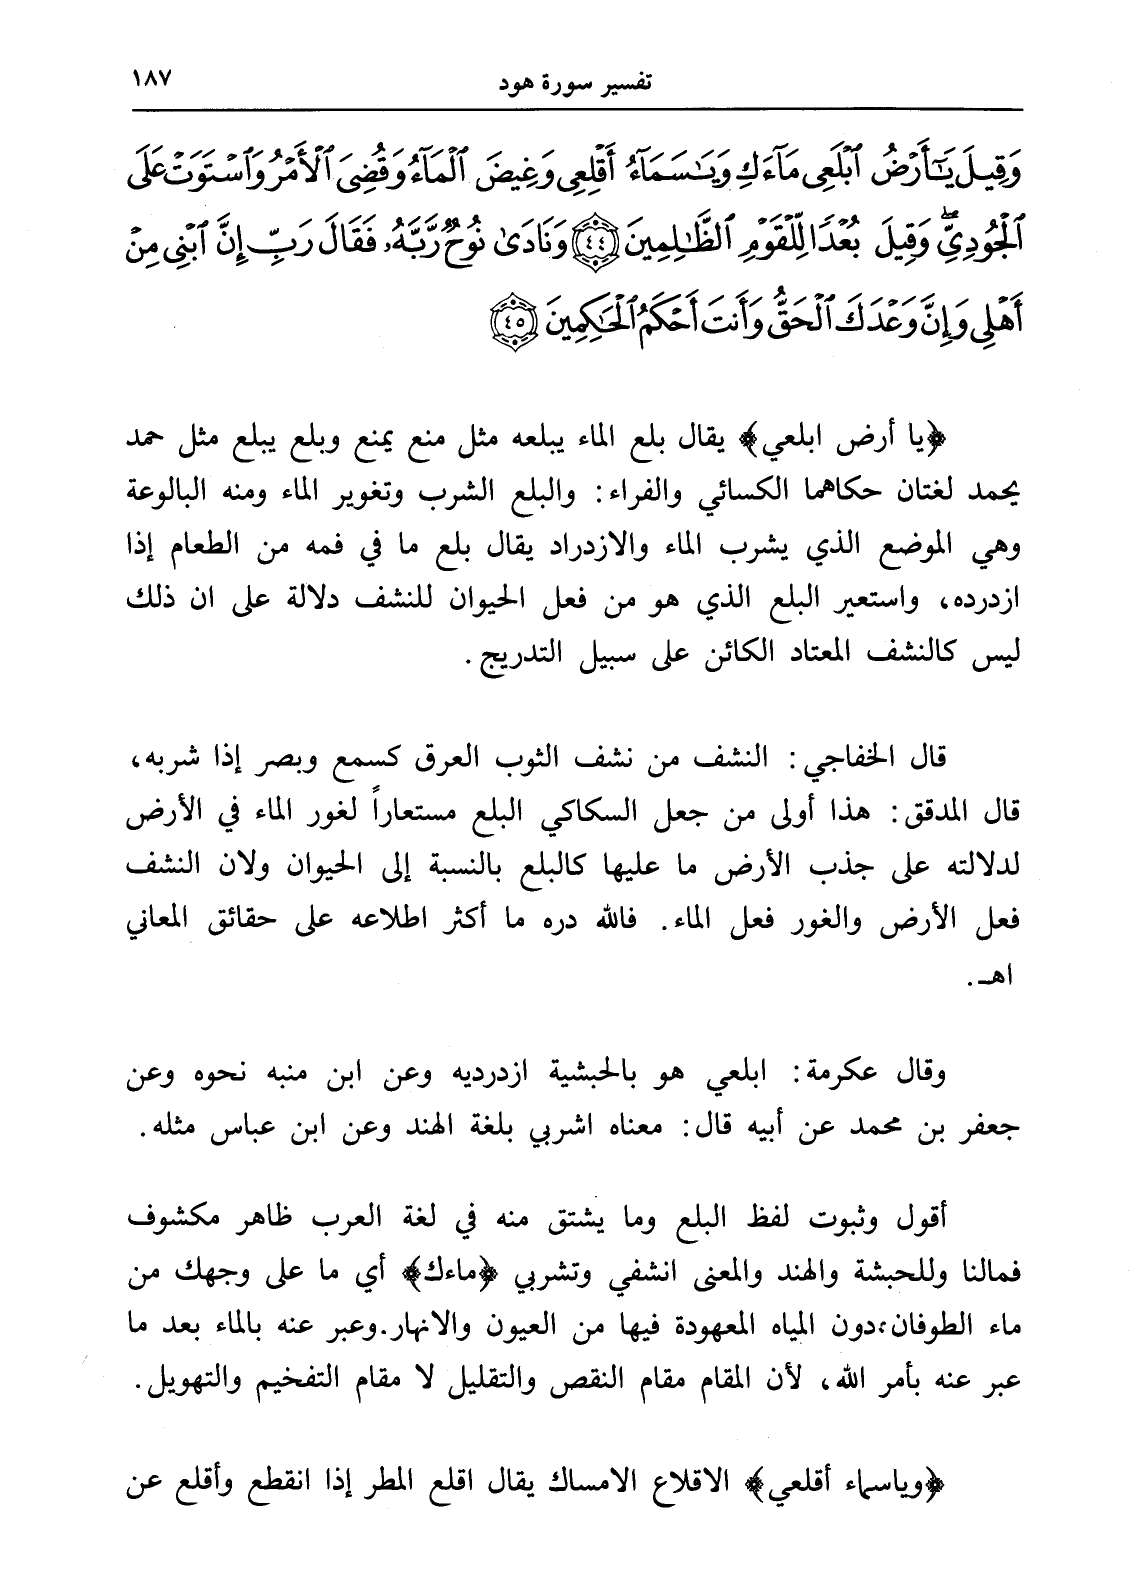 تفسير سورة هود ١٨٧
وَقِيلَ يَٰٓأَرْضُ ٱبْلَعِى مَآءَكِ وَيَٰسَمَآءُ أَقْلِعِى وَغِيضَ ٱلْمَآءُ وَقُضِىَ ٱلْأَمْرُ وَٱسْتَوَتْ عَلَى
ٱلْجُودِىِّ ۖ وَقِيلَ بُعْدًا لِّلْقَوْمِ ٱلظَّٰلِمِينَ ﴿٤٤﴾ وَنَادَىٰ نُوحٌ رَّبَّهُۥ فَقَالَ رَبِّ إِنَّ ٱبْنِى مِنْ
أَهْلِى وَإِنَّ وَعْدَكَ ٱلْحَقُّ وَأَنتَ أَحْكَمُ ٱلْحَٰكِمِينَ ﴿٤٥﴾
﴿يا أرض ابلعي﴾ يقال بلع الماء يبلعه مثل منع يمنع وبلع يبلع مثل حمد
يحمد لغتان حكاهما الكسائي والفراء: والبلع الشرب وتغوير الماء ومنه البالوعة
وهي الموضع الذي يشرب الماء والازدراد يقال بلع ما في فمه من الطعام إذا
ازدرده، واستعير البلع الذي هو من فعل الحيوان للنشف دلالة على ان ذلك
ليس كالنشف المعتاد الكائن على سبيل التدريج.
قال الخفاجي: النشف من نشف الثوب العرق كسمع وبصر إذا شربه،
قال المدقق: هذا أولى من جعل السكاكي البلع مستعاراً لغور الماء في الأرض
لدلالته على جذب الأرض ما عليها كالبلع بالنسبة إلى الحيوان ولان النشف
فعل الأرض والغور فعل الماء. فالله دره ما أكثر اطلاعه على حقائق المعاني
اهـ.
وقال عكرمة: ابلعي هو بالحبشية ازدرديه وعن ابن منبه نحوه وعن
جعفر بن محمد عن أبيه قال: معناه اشربي بلغة الهند وعن ابن عباس مثله.
أقول وثبوت لفظ البلع وما يشتق منه في لغة العرب ظاهر مكشوف
فمالنا وللحبشة والهند والمعنى انشفي وتشربي ﴿ماءك﴾ أي ما على وجهك من
ماء الطوفان؛دون المياه المعهودة فيها من العيون والانهار.وعبر عنه بالماء بعد ما
عبر عنه بأمر الله، لأن المقام مقام النقص والتقليل لا مقام التفخيم والتهويل.
﴿وياسماء أقلعي﴾ الاقلاع الامساك يقال اقلع المطر إذا انقطع وأقلع عن